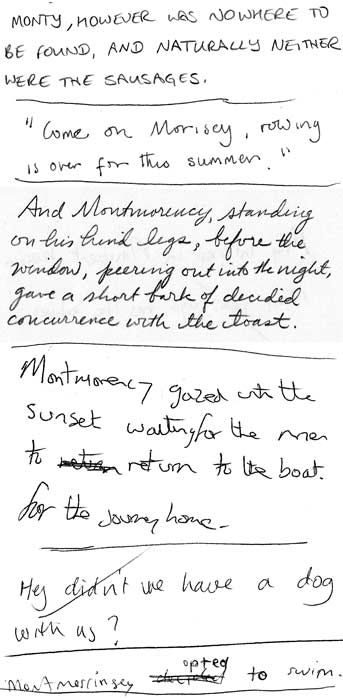 MONTY, HOWEVER WAS NOWHERE TO
BE FOUND, AND NATURALLY NEITHER
WERE THE SAUSAGES.
"Come on Morisey, rowing
is over for this summer."
And Montmorency, standing
on his hind legs, before the
window, peering out into the night,
gave a short bark of decided
concurrence with the toast.
Montmorency gazed into the
sunset waiting for the men
to return to the boat.
for the journey home.
Hey didn't we have a dog
with us?
Montmorrinsey opted to swim.